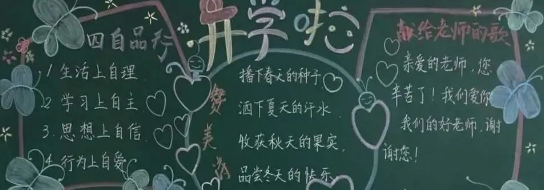 开学啦
四自品行
1 生活上自理
2 学习上自主
3 思想上自信
4 行为上自爱
播下春天的种子
洒下夏天的汗水，
收获秋天的果实，
品尝冬天的快乐
献给老师的歌
亲爱的老师，您
辛苦了！我们爱你
我们的好老师，谢
谢您！